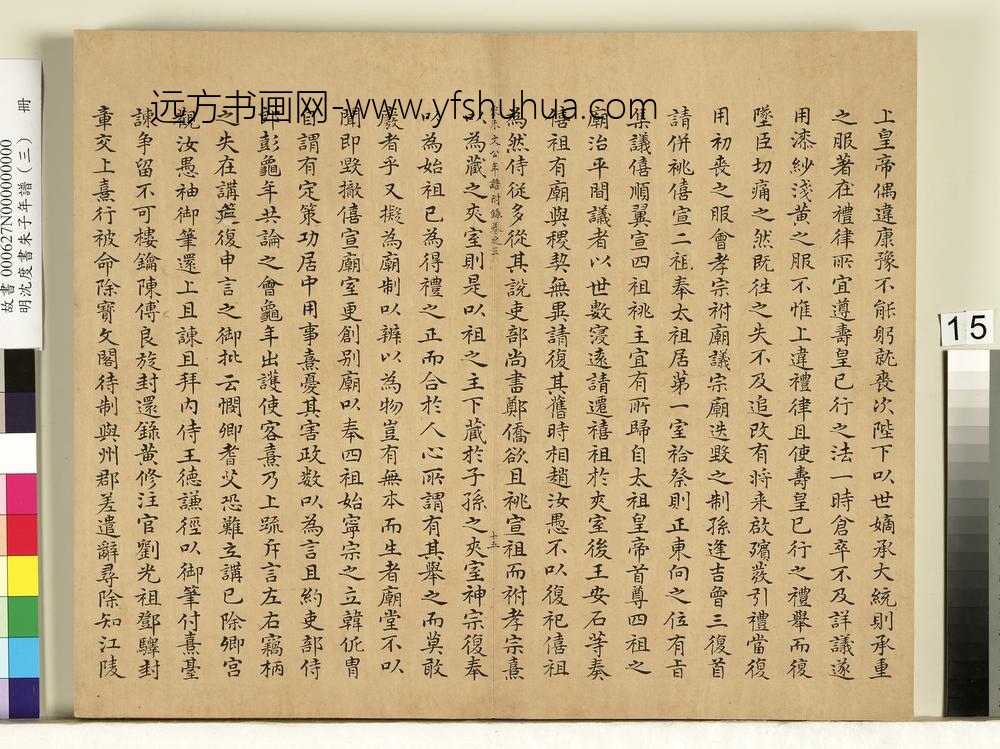 上皇帝偶違康豫不能躬就喪次陛下以世嫡承大統則承重
之服著在禮律所宜遵壽皇已行之法一時倉卒不及詳議遂
用漆紗淺黃之服不惟上違禮律且使壽皇已行之禮舉而復
墜臣切痛之然既往之失不及追改有將来啟殯發引禮當復
用初喪之服會孝宗祔廟議宗廟迭毀之制孫逢吉曾三復首
請併祧僖宣二祖奉太祖居第一室祫祭則正東向之位有旨
集議僖順翼宣四祖祧主宜有所歸自太祖皇帝首尊四祖之
廟治平間議者以世數寖遠請遷禧祖於夾室後王安石等奏
僖祖有廟與稷契無異請復其舊時相趙汝愚不以復祀僖祖
為然侍從多從其說吏部尚書鄭僑欲且祧宣祖而祔孝宗熹
朱文公年譜附錄卷之三
十五
以為藏之夾室則是以祖之主下藏於子孫之夾室神宗復奉
以為始祖已為得禮之正而合於人心所謂有其舉之而莫敢
廢者乎又擬為廟制以辨以為物豈有無本而生者廟堂不以
聞即毀撤僖宣廟室更創別廟以奉四祖始寧宗之立韓侂冑
自謂有定策功居中用事熹憂其害政數以為言且約吏部侍
郎彭龜年共論之會龜年出護使客熹乃上疏斥言左右竊柄
之失在講筵復申言之御批云憫卿耆艾恐難立講已除卿宮
觀汝愚袖御筆還上且諫且拜內侍王德謙徑以御筆付熹臺
諫争留不可樓鑰陳傅良旋封還錄黃修注官劉光祖鄧驛封
章交上熹行被命除寶文閣待制與州郡差遣辭尋除知江陵
远方书画网-www.yfshuhua.com
故書 000627N0000000000 冊
明沈度書朱子年譜（三）
15